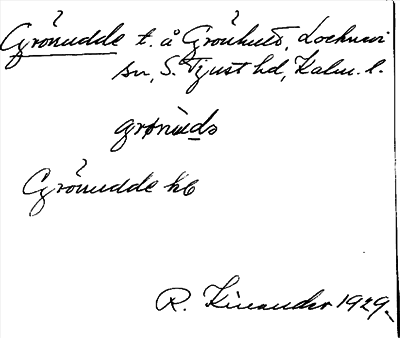 Grönudde t. å Grönhult, Locknevi
sn, S. Tjust hd, Kalm. l.
grønùds
Grönudde hb
R. Kinander 1929.